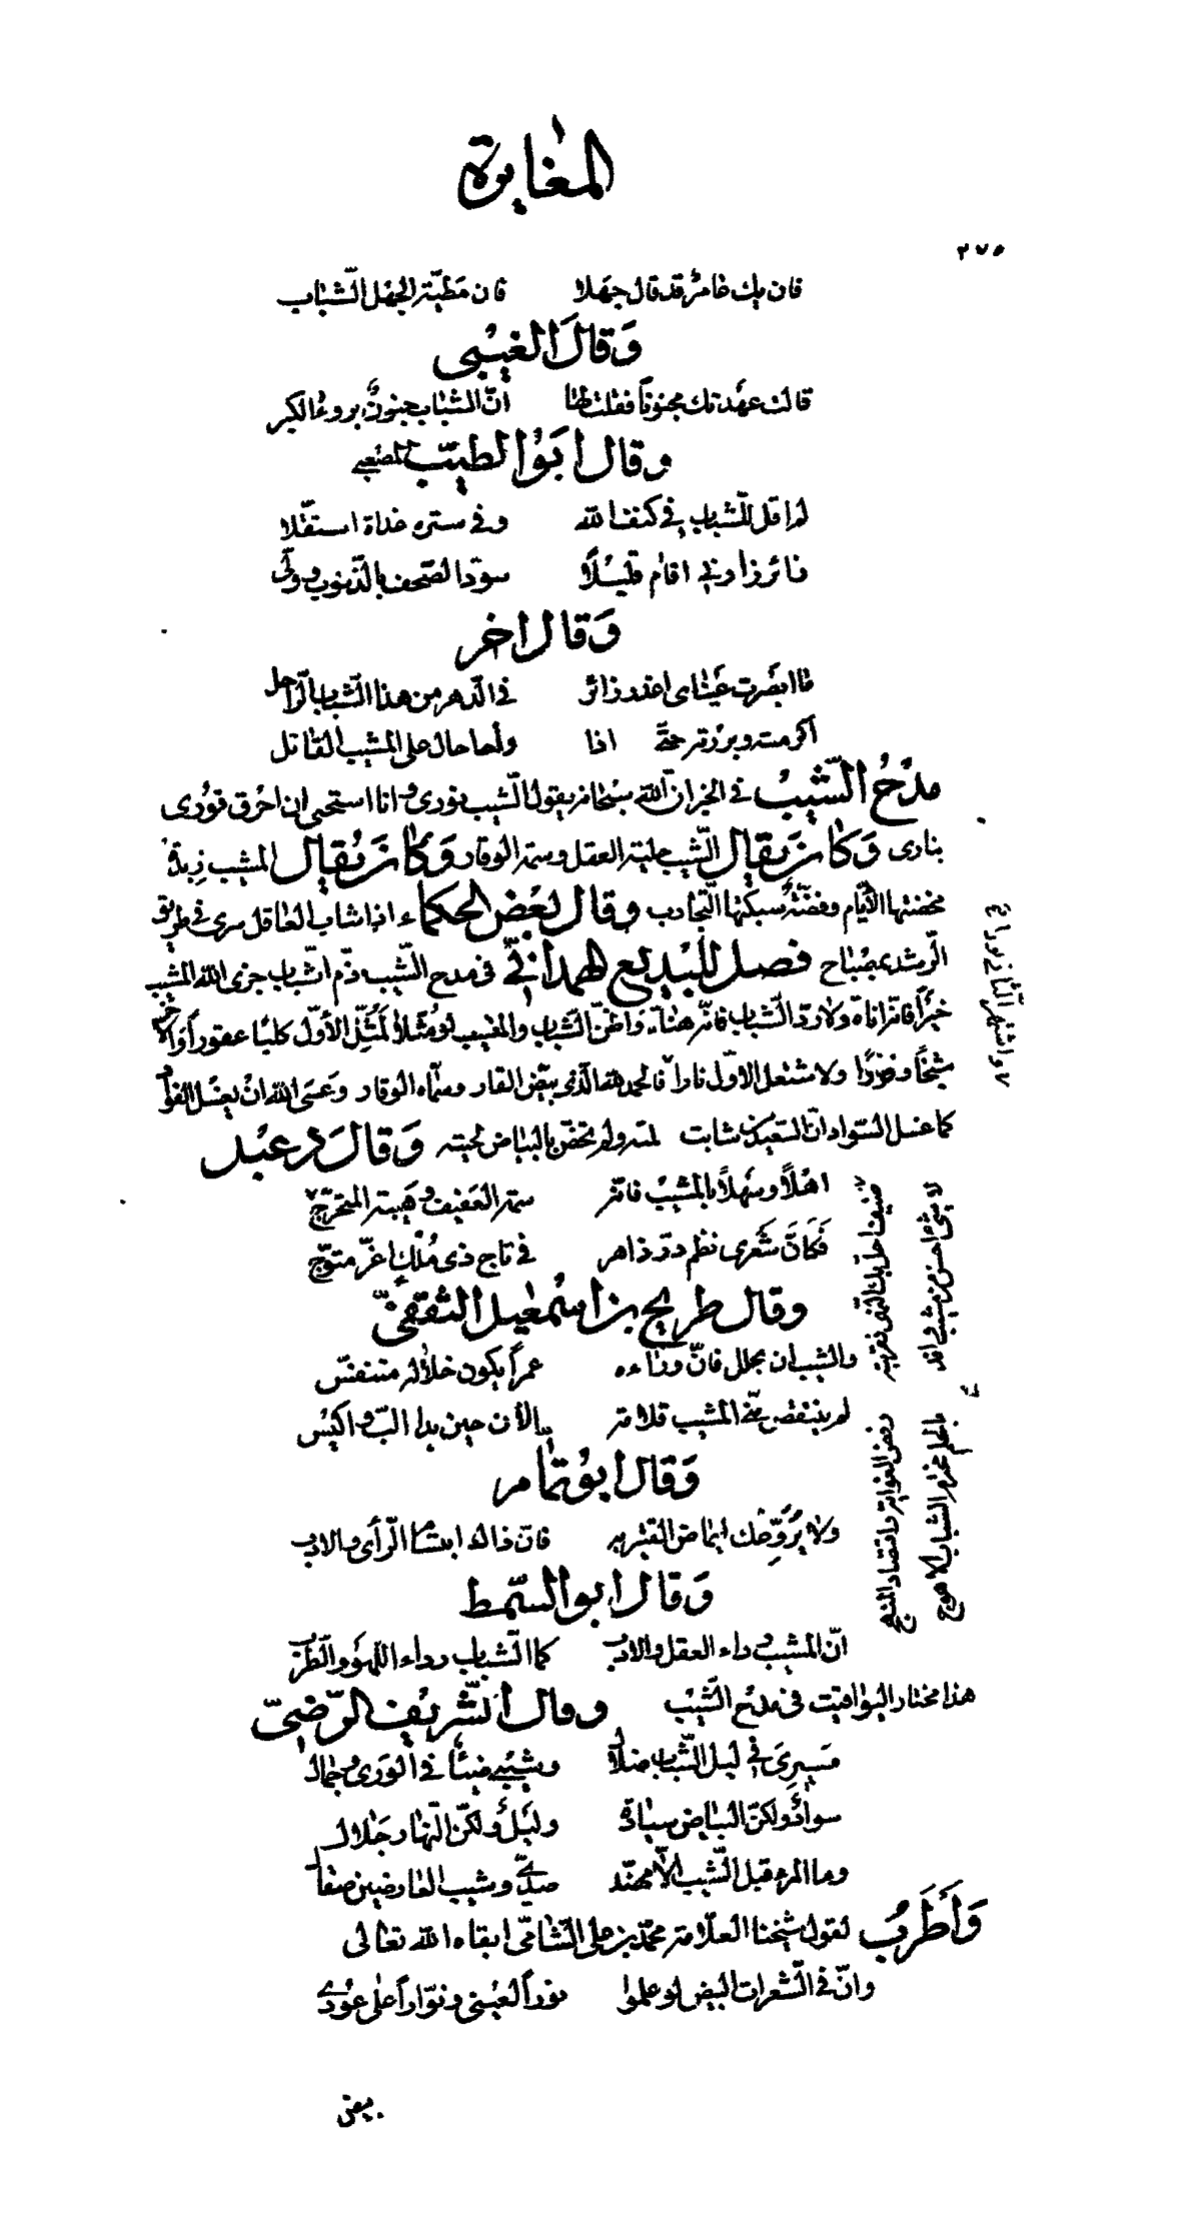 المغايرة
٢٧٥
فان يك عامر قد قال جهلا فان مطية الجهل الشباب
وَقالَ الغيبى
قالت عهدتك مجنوناً فقلت لها انّ الشباب جنونٌ بروءُ الكبر
وقال ابَوُ الطيّب المصعبى
لم اقل للشباب فى كنف الله وفى ستره غداة استقلّا
زائر زارنى اقام قليلاً سوّد الصّحف بالذّنوب وولّى
وَقال اخر
ما ابصَرت عَيناى اعذر زائر فى الدّهر من هذا الشّباب الرّاحل
اكرمته وبررته حتّى اذا ولّى احال على المشيب القاتل
مدْحُ الشّيبُ فى الخبر ان اللّه سبحانه يقول الشّيب نورى وانا استحيى ان احرُق نوُرى
بنارى وَكانَ يقال الشّيب حلية العقل وسمة الوقار وَكانَ يُقال المشيب زِبدة
مخضتها الايّام وفضّةٌ سبكتها التّجارب وقال بعْض الحكماء اذا شاب العاقل سرى فى طريق
الرّشد بمصباح فصل للبديع الهمدانىّ فى مدح الشّيب وذّم الشّباب جزى الله المشيب
خيراً فانه اناة ولا ردّ الشّباب فانّه هناة وَاظنّ الشّباب والمشيب لو مُثّلا لَمُثّل الاوّل كلبًا عقوراً وَالآخر
شيخًا وقورًا ولاشتعل الاوّل ناراً فالحمد لله الّذى بيّض القار وسمّاه الوقار وَعسَى اللّه انْ يغسل الفؤاد
كما غسل السّواد انّ السّعيد من شابت لمته ولم تخصّ بالبياض لحيته وَقالَ دعْبل
اهْلاً وسَهلاً بالمَشيبُ فانه سمة العَفيف وهَيبة المتحرّجْ
فَكَأنَّ شَعَرى نظم درّ زاهر فى تاج ذى مُلْكٍ اغرّ متوّج
وقال طريح بن اسمٰعيل الثقفىّ
والشيب ان يحلل فانّ وراءه عمراً يكون خلاله متنفسّ
لم ينتقص منّى المشيب قلامة الآن حين بدا البّ واكيَس
وَقال ابوُ تمام
ولا يُرَوِّعْك ايماض القتير به فانّ ذاك ابتسام الرّأى والادب
وَقال ابو السّمط
انّ المشيب رداء العقل والادب كما الشّباب رداء اللّهو والطّرب
هذا مختار اليواقيت فى مدْح الشّيْب وقال الشّريف الرّضىّ
مَسِيرِىَ فى ليل الشّباب ضلال وشيبى ضيَاء فى الوَرى وجمال
سوادٌ ولكنّ البياض سيادة وليلٌ ولكنّ النّهار جَلال
وما المرء قبل الشّيب الّا مهنّد صدىّ وشيب العارضين صقال
وَأطرَبُ لقول شيخنا العلّامة محمّد بن على الشّامى ابقاه اللّه تعالى
وانّ فى الشّعرات البيض لو علموا نوراً لعينى ونوّاراً على عوُدى
لا شئ احسن من مشيب وافد
بالحلم مخترم الشباب الاهوج
ضيف احلّ بك النهى فقريته
رفض الغواية واقتصاد المنهج